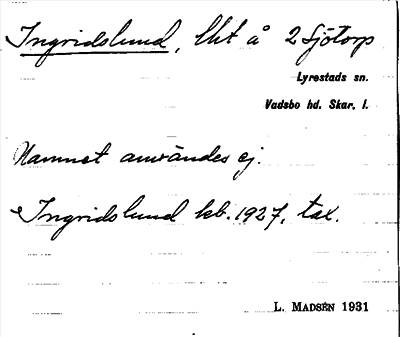 Ingridslund, lht å 2 Sjötorp
Lyrestads sn.
Vadsbo hd. Skar. l.
Namnet användes ej.
Ingridslund kb. 1927, tax.
L. MADSÉN 1931